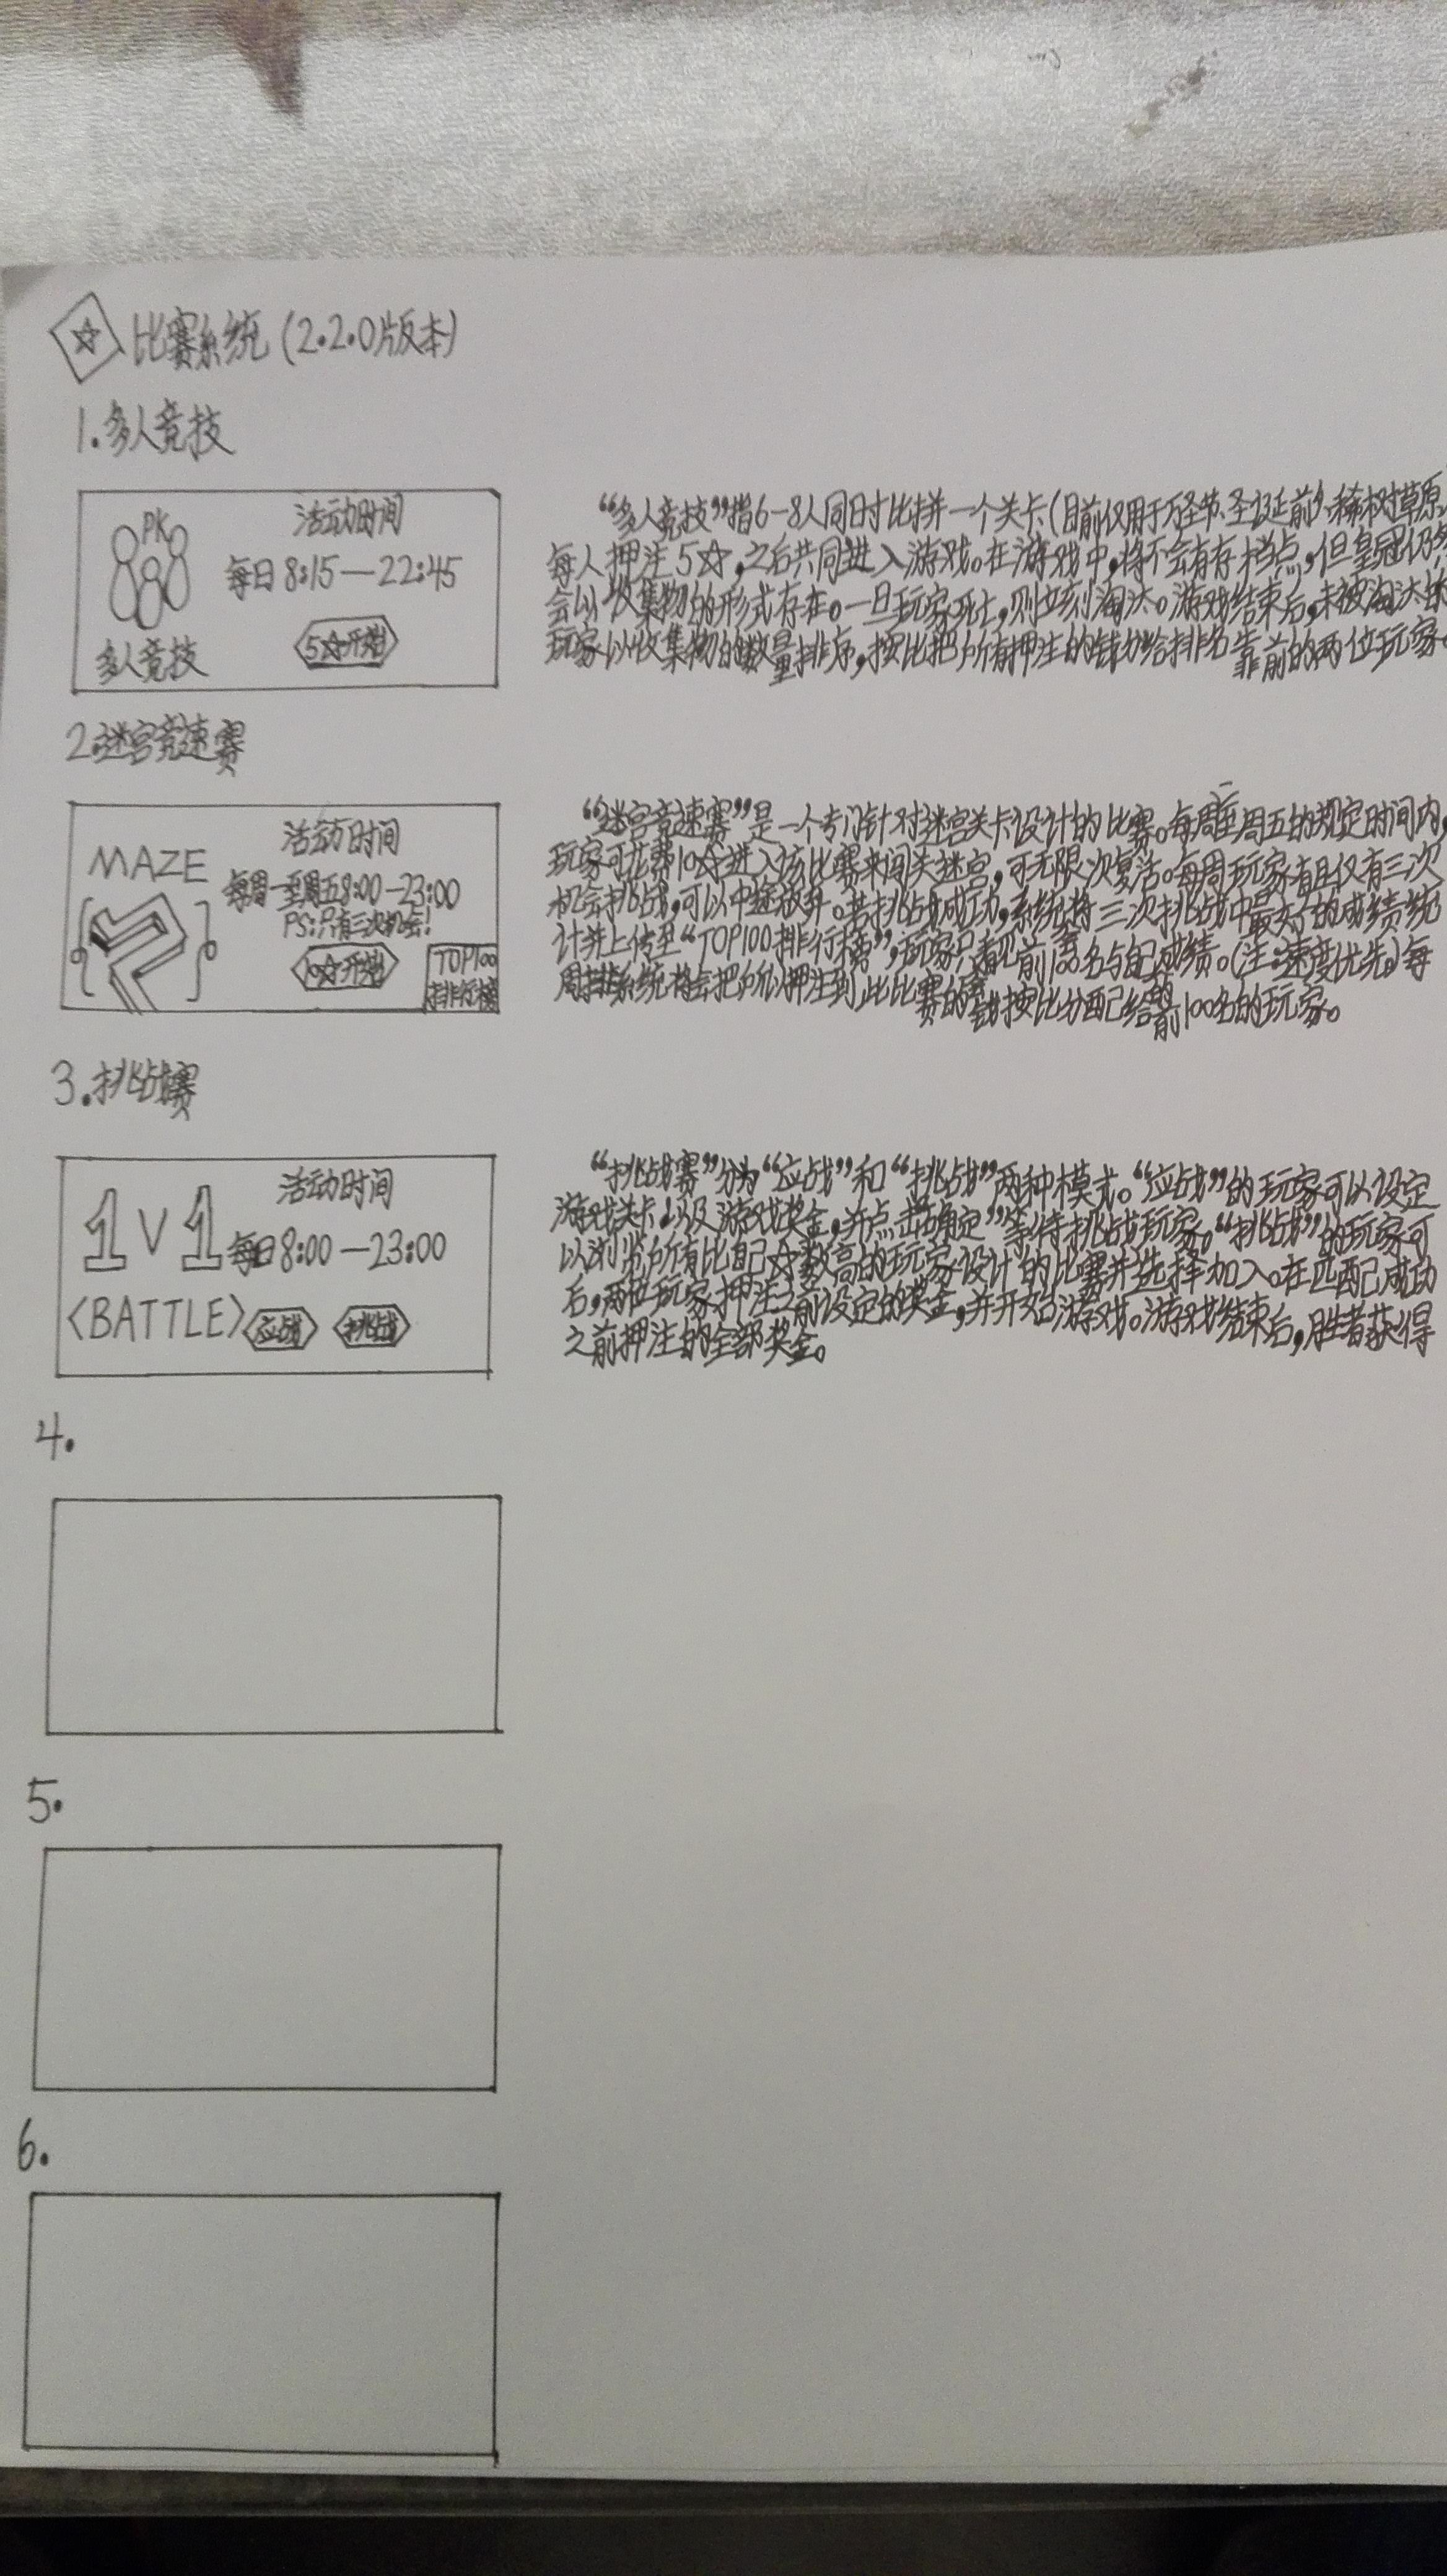 ☆ 比赛系统 (2.2.0版本)
1.多人竞技
PK
活动时间
每日 8:15—22:45
5☆开始
多人竞技
“多人竞技”指6-8人同时比拼一个关卡(目前仅用于万圣节、圣诞前夕、稀树草原
每人押注5☆,之后共同进入游戏。在游戏中,将不会有存档点,但皇冠仍然
会以收集物的形式存在。一旦玩家死亡,则立刻淘汰。游戏结束后,未被淘汰的
玩家以收集物的数量排序,按比把所有押注的钱分给排名靠前的两位玩家。
2.迷宫竞速赛
MAZE
活动时间
每周一至周五8:00—23:00
PS:只有三次机会!
10☆开始
TOP100
排行榜
“迷宫竞速赛”是一个专门针对迷宫关卡设计的比赛。每周一至周五的规定时间内,
玩家可花费10☆进入该比赛来闯关迷宫,可无限次复活。每周玩家有且仅有三次
机会挑战,可以中途放弃。若挑战成功,系统将三次挑战中最好的成绩统
计并上传至“TOP100排行榜”,玩家只看见前100名与自己成绩。(注:速度优先)每
周系统将会把所以押注到此比赛的钱按比分配给前100名的玩家。
3.挑战赛
1V1
活动时间
每日8:00—23:00
<BATTLE>
应战
挑战
“挑战赛”分为“应战”和“挑战”两种模式。“应战”的玩家可以设定
游戏关卡以及游戏奖金,并点击“确定”等待挑战玩家。“挑战”的玩家可
以浏览所有比自己☆数高的玩家设计的比赛并选择加入。在匹配成功
后,两位玩家押注之前设定的奖金,并开始游戏。游戏结束后,胜者获得
之前押注的全部奖金。
4.
5.
6.